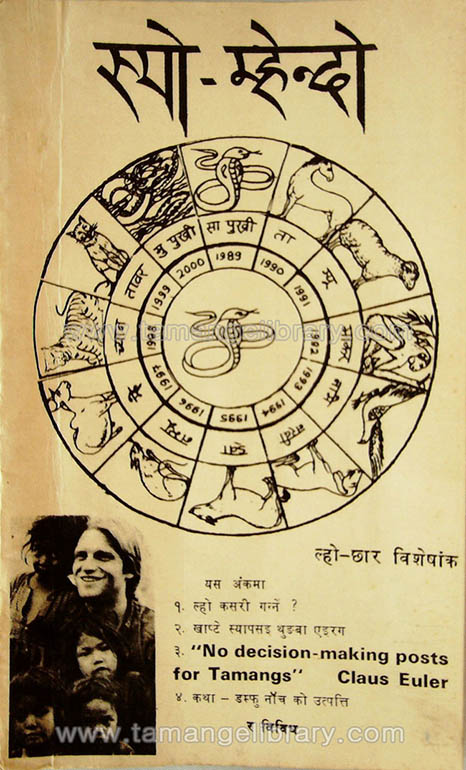 स्यो-म्हेन्दो
मु पुख्री सा पुख्री ता
2000 1989 1990
1999 1991
1998 1992
1997 1993
1996 1995 1994
www.tamangelibrary.com
ल्हो-छार विशेषांक
यस अंकमा
१. ल्हो कसरी गन्ने ?
२. खाप्टे स्यापसइ थुङबा एइरग
३. "No decision-making posts
for Tamangs" Claus Euler
४. कथा - डम्फु नाँच को उत्पत्ति
र विविध
www.tamangelibrary.com